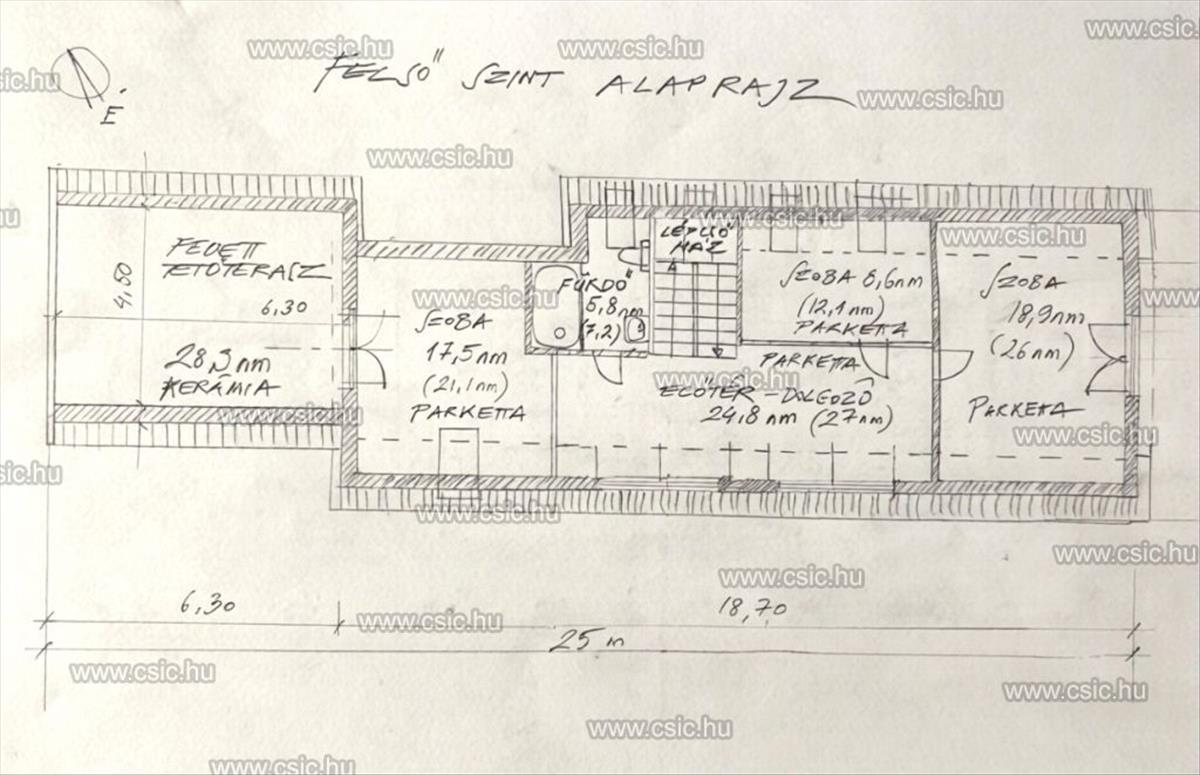 www.csic.hu
www.csic.hu
www.csic.hu
FELSŐ SZINT ALAPRAJZ
www.csic.hu
www.csic.hu
É
www.csic.hu
FEDETT
TETŐTERASZ
4,50
6,30
28,3 nm
KERÁMIA
SZOBA
17,5 nm
(21,1 nm)
PARKETTA
www.csic.hu
FÜRDŐ
5,8 nm
(7,2)
LÉPCSŐ
HÁZ
www.csic.hu
SZOBA 8,6 nm
(12,1 nm)
PARKETTA
www.csic.hu
PARKETTA
ELŐTÉR - DOLGOZÓ
24,8 nm (27 nm)
www.csic.hu
www.csic.hu
SZOBA
18,9 nm
(26 nm)
PARKETTA
www.csic.hu
www.csic.hu
www.csic.hu
www.csic.hu
www.csic.hu
www.csic.hu
6,30
18,70
www.csic.hu
25 m
www.csic.hu
www.csic.hu
www.csic.hu
www.csic.hu